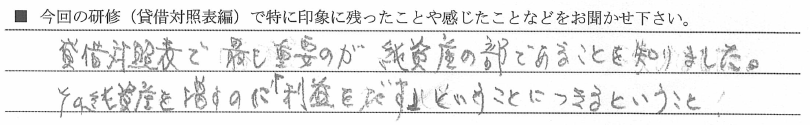 ■ 今回の研修（貸借対照表編）で特に印象に残ったことや感じたことなどをお聞かせ下さい。
貸借対照表で最も重要のが純資産の部であることを知りました。
その純資産を増すのに「利益をだす」ということにつきるということ！